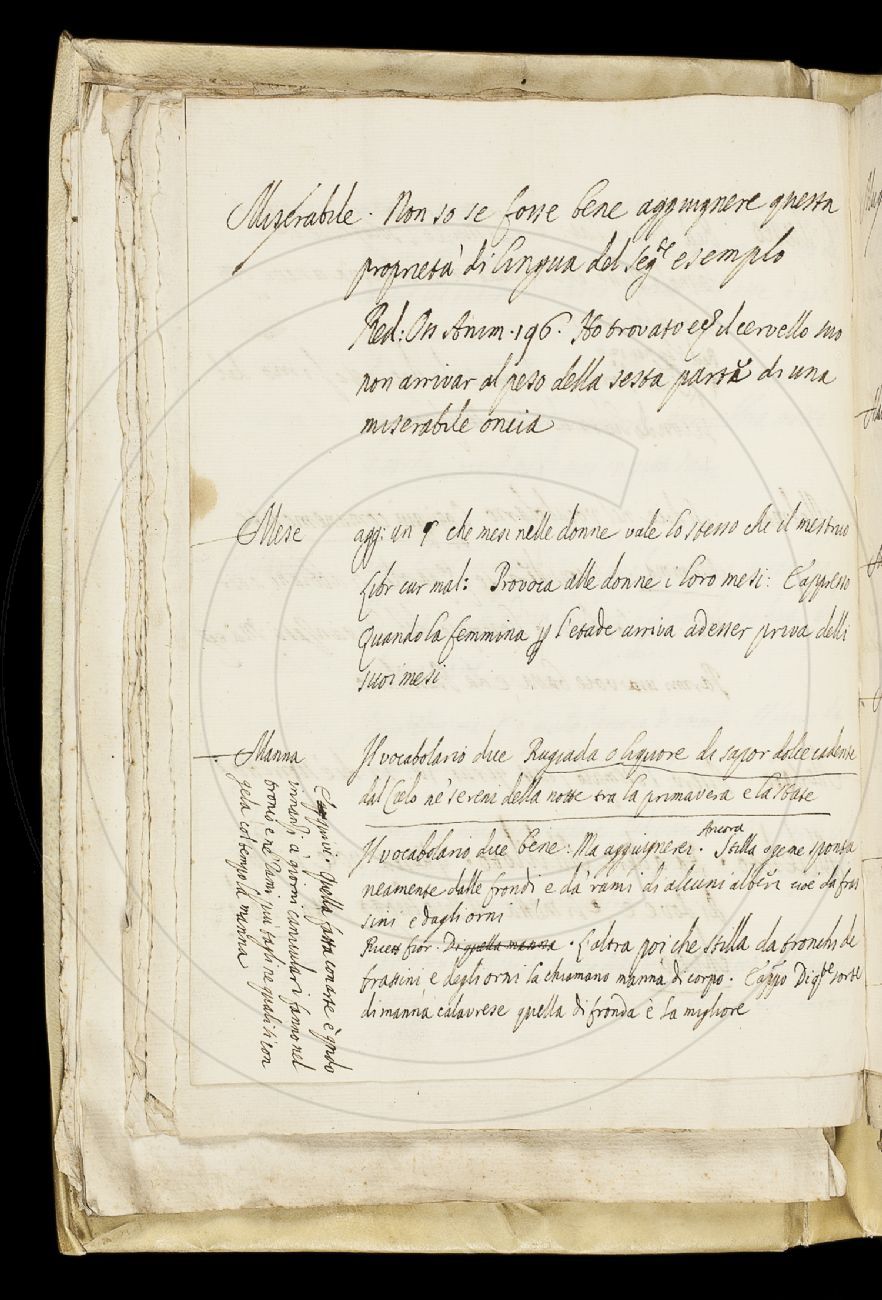 Miserabile. Non so se fosse bene aggiugnere questa
proprietà di lingua del seg.te esempio
Red: Oss Anim. 196. Ho trovato il cervello suo
non arrivar al peso della sesta parte di una
miserabile oncia
Mese agg: un § che mesi nelle donne vale lo stesso che il mestruo
Libr cur mal: Provoca alle donne i loro mesi: E appresso
Quando la femmina p l'etade arriva ad esser priva delli
suoi mesi
Manna Il vocabolario dice Rugiada o liquore da sapor dolce cadente
dal Cielo ne' sereni della notte tra la primavera e la state
Il vocabolario dice bene: Ma aggiugnerei. Ancora Stilla e geme sponta
neamente dalle frondi e da' rami di alcuni alberi cioè da fras
sini e dagli orni
Ricett fior. Di quella manna. L'altra poi che stilla da tronchi de
frassini e degli orni la chiamano manna di corpo. E appo Di q.te sorte
di manna calavrese quella di fronda è la migliore
E quivi. Quella fatta con arte è qndo
ne giorni caniculari fanno nel
tronco e ne' rami più tagli ne quali si con
gela col tempo la manna